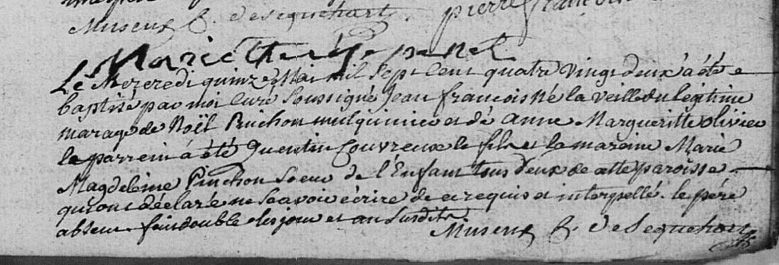 Museux C. de Sequehart pierre francois
Marie Therese penet
Le Mercredi quinze Mai mil Sept Cent quatre vingt deux a été
baptisé par moi Curé Soussigné Jean francois né la veille du légitime
mariage de Noël Pinchon mulquinier et de Anne Margueritte olivier
le parrein a été Quentin Couvreux le fils et la mareine Marie
Magdeleine Pinchon Soeur de l'Enfant tous deux de cette paroisse
qui ont déclaré ne Scavoir écrire de ce requis et interpellé. le père
absent fait double les jour et an Susdits.
Museux C. de Sequehart